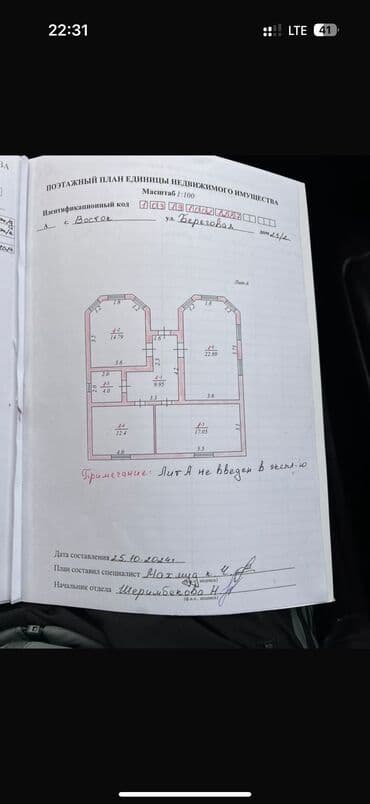 22:31
LTE 41
ПОЭТАЖНЫЙ ПЛАН ЕДИНИЦЫ НЕДВИЖИМОГО ИМУЩЕСТВА
Масштаб 1:100
Идентификационный код
с. Восток ул Береговая дом
Лит А
1.8
1.8
14.79
1.6
22.89
3.6
2.0
4.0
9.95
3.3
3.6
12.4
17.05
4.0
5.5
Примечание: Лит А не введен в экспл-ю
Дата составления 25.10.2024г
План составил специалист
Начальник отдела Шеримбекова Н